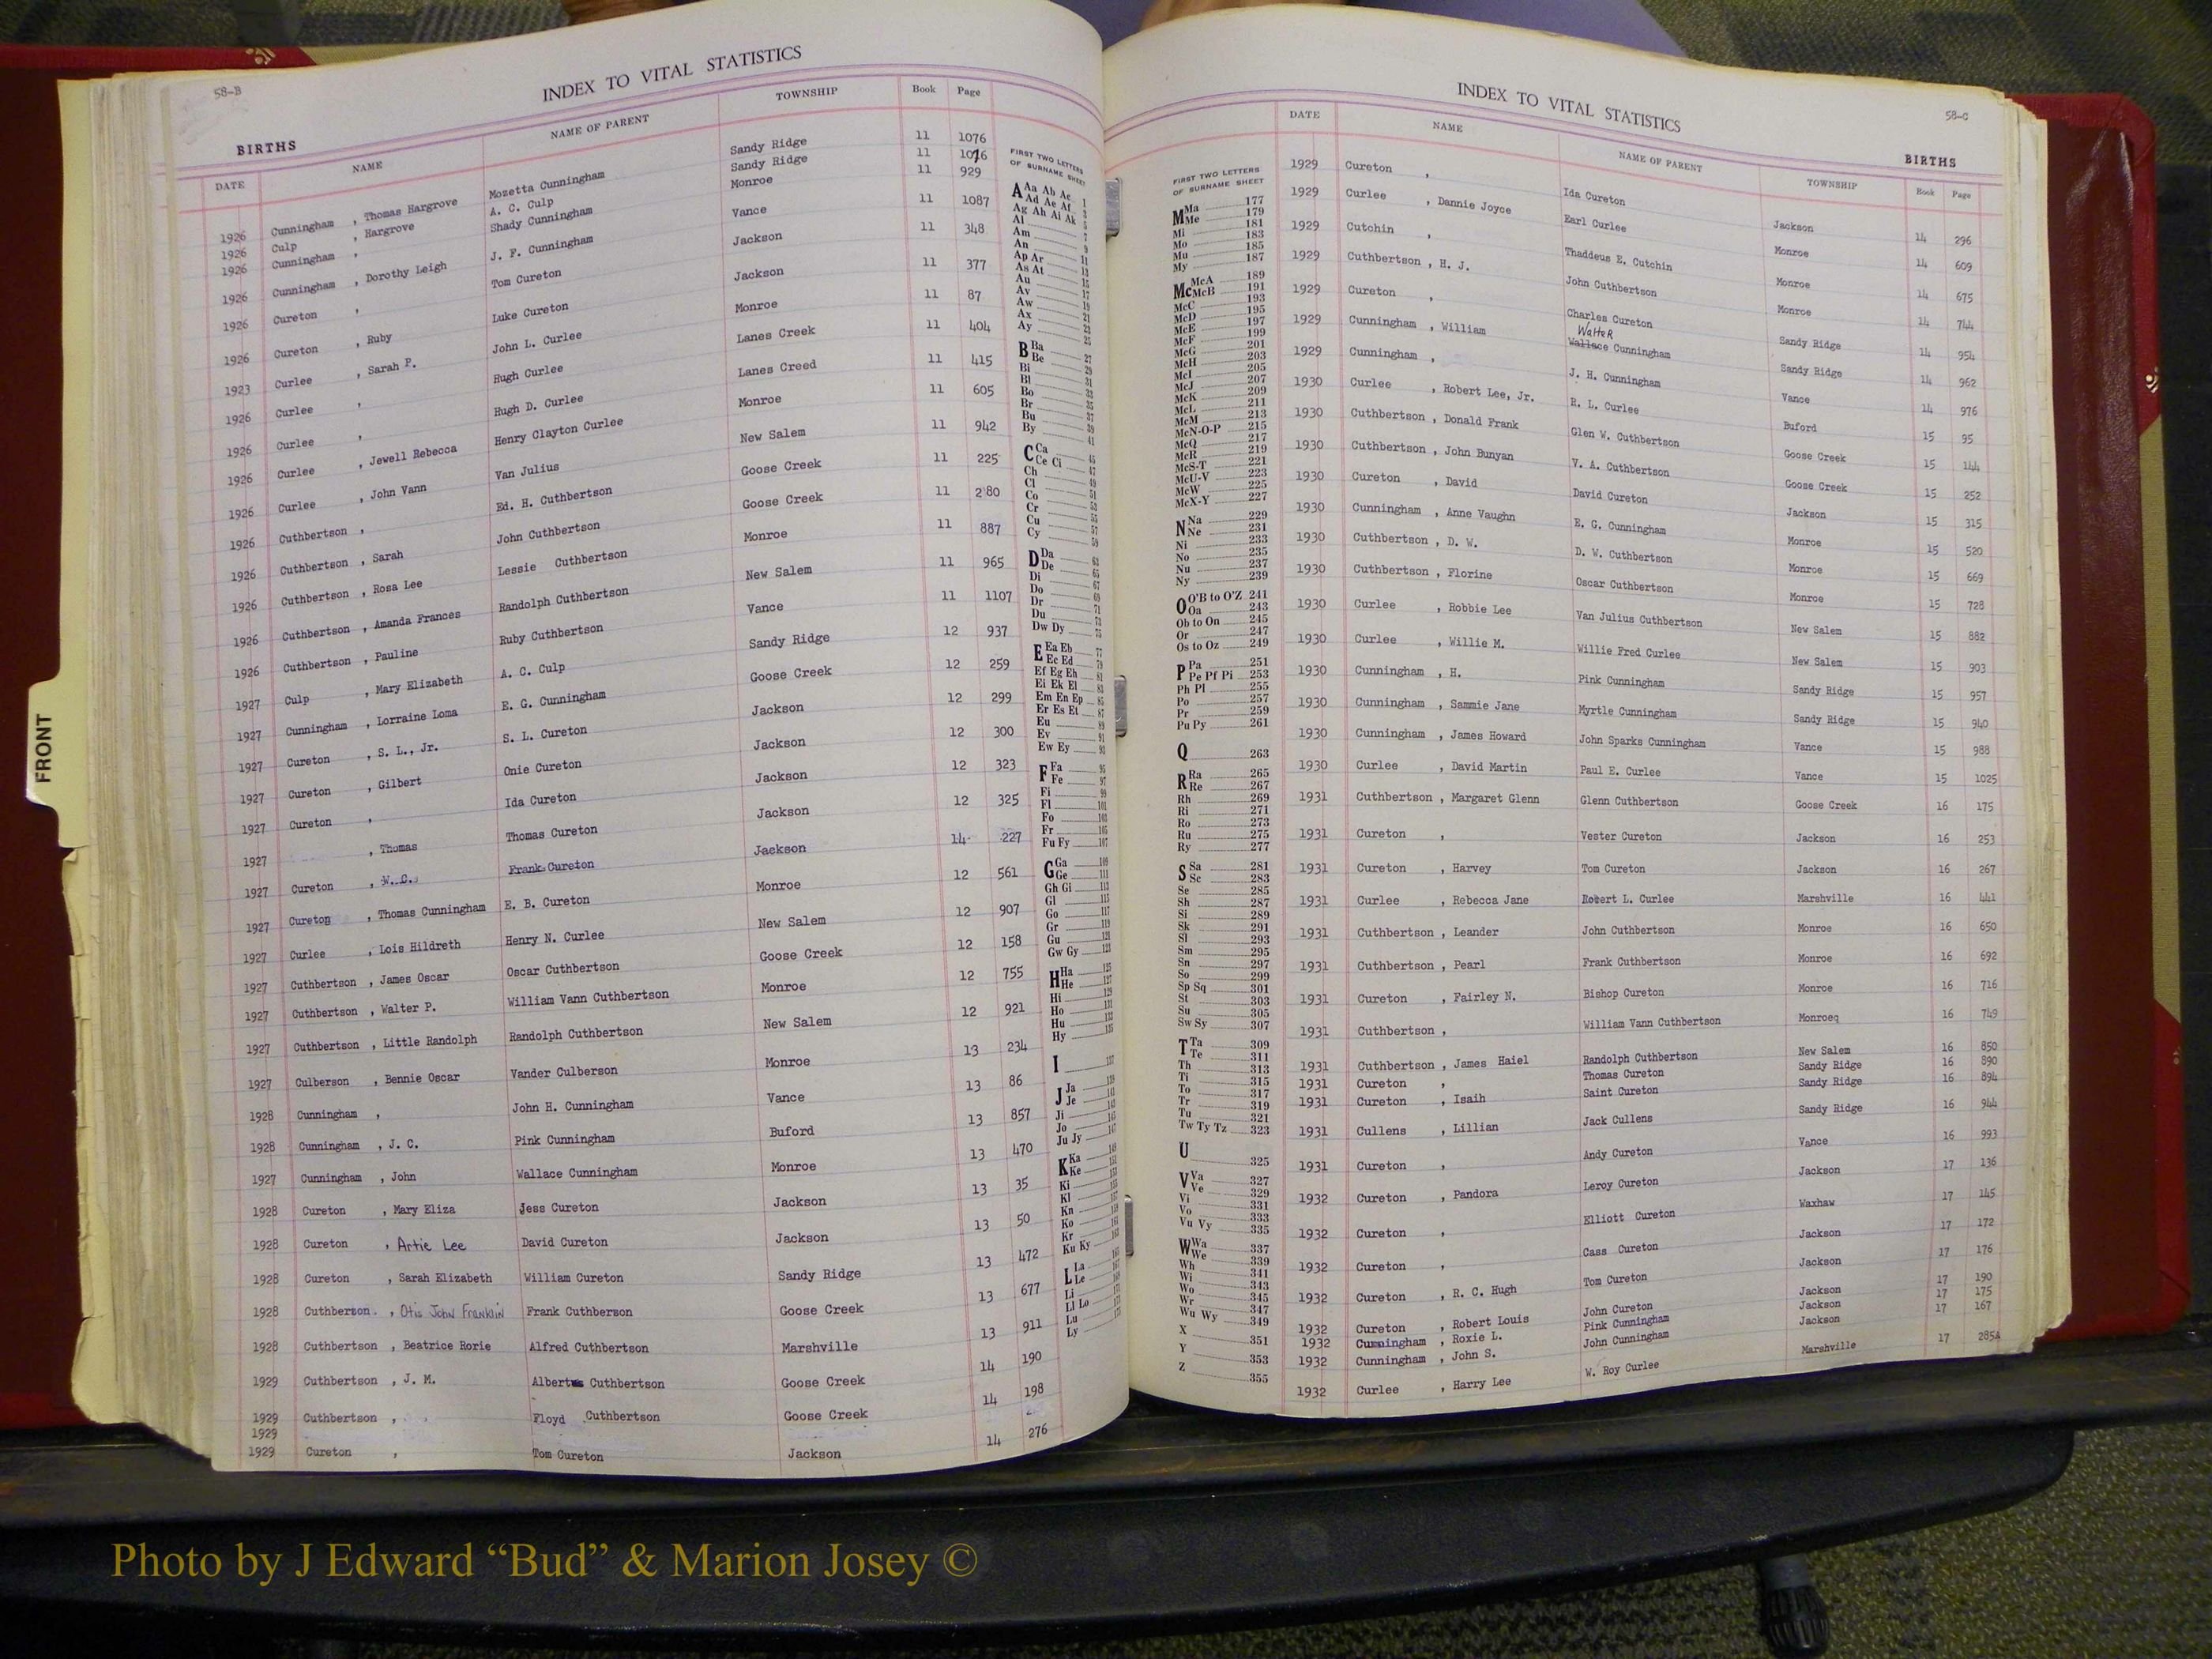 58-B
INDEX TO VITAL STATISTICS
BIRTHS
DATE NAME NAME OF PARENT TOWNSHIP Book Page
1926 Cunningham , Thomas Hargrove Mozetta Cunningham Sandy Ridge 11 1076
1926 Culp , Hargrove A. C. Culp Sandy Ridge 11
1926 Cunningham , Shady Cunningham Monroe 11 929
1926 Cunningham , Dorothy Leigh J. F. Cunningham Vance 11 1087
1926 Cureton , Tom Cureton Jackson 11 348
1926 Cureton , Ruby Luke Cureton Jackson 11 377
1923 Curlee , Sarah P. John L. Curlee Monroe 11 87
1926 Curlee , Hugh Curlee Lanes Creek 11 404
1926 Curlee , Hugh D. Curlee Lanes Creed 11 415
1926 Curlee , Jewell Rebecca Henry Clayton Curlee Monroe 11 605
1926 Curlee , John Vann Van Julius New Salem 11 942
1926 Cuthbertson , Ed. H. Cuthbertson Goose Creek 11 225
1926 Cuthbertson , Sarah John Cuthbertson Goose Creek 11 280
1926 Cuthbertson , Rosa Lee Lessie Cuthbertson Monroe 11 887
1926 Cuthbertson , Amanda Frances Randolph Cuthbertson New Salem 11 965
1926 Cuthbertson , Pauline Ruby Cuthbertson Vance 11 1107
1927 Culp , Mary Elizabeth A. C. Culp Sandy Ridge 12 937
1927 Cunningham , Lorraine Loma E. G. Cunningham Goose Creek 12 259
1927 Cureton , S. L., Jr. S. L. Cureton Jackson 12 299
1927 Cureton , Gilbert Onie Cureton Jackson 12 300
1927 Cureton , Ida Cureton Jackson 12 323
1927 , Thomas Thomas Cureton Jackson 12 325
1927 Cureton , W. C. Frank Cureton Jackson 14 227
1927 Cureton , Thomas Cunningham E. B. Cureton Monroe 12 561
1927 Curlee , Lois Hildreth Henry N. Curlee New Salem 12 907
1927 Cuthbertson , James Oscar Oscar Cuthbertson Goose Creek 12 158
1927 Cuthbertson , Walter P. William Vann Cuthbertson Monroe 12 755
1927 Cuthbertson , Little Randolph Randolph Cuthbertson New Salem 12 921
1927 Culberson , Bennie Oscar Vander Culberson Monroe 13 234
1928 Cunningham , John H. Cunningham Vance 13 86
1928 Cunningham , J. C. Pink Cunningham Buford 13 857
1927 Cunningham , John Wallace Cunningham Monroe 13 470
1928 Cureton , Mary Eliza Jess Cureton Jackson 13 35
1928 Cureton , Artie Lee David Cureton Jackson 13 50
1928 Cureton , Sarah Elizabeth William Cureton Sandy Ridge 13 472
1928 Cuthberson , Otis John Franklin Frank Cuthberson Goose Creek 13 677
1928 Cuthbertson , Beatrice Rorie Alfred Cuthbertson Marshville 13 911
1929 Cuthbertson , J. M. Albert Cuthbertson Goose Creek 14 190
1929 Cuthbertson , Floyd Cuthbertson Goose Creek 14 198
1929
1929 Cureton , Tom Cureton Jackson 14 276
FIRST TWO LETTERS
OF SURNAME SHEET
A Aa Ab Ac 1
Ad Ae Af 3
Ag Ah Ai Ak 5
Al 7
Am 9
An 11
Ap Ar 13
As At 15
Au 17
Av 19
Aw 21
Ax 23
Ay 25
B Ba 27
Be 29
Bi 31
Bl 33
Bo 35
Br 37
Bu 39
By 41
C Ca 45
Ce Ci 47
Ch 49
Cl 51
Co 53
Cr 55
Cu 57
Cy 59
D Da 63
De 65
Di 67
Do 69
Dr 71
Du 73
Dw Dy 75
E Ea Eb 77
Ec Ed 79
Ef Eg Eh 81
Ei Ek El 83
Em En Ep 85
Er Es Et 87
Eu 89
Ev 91
Ew Ey 93
F Fa 95
Fe 97
Fi 99
Fl 101
Fo 103
Fr 105
Fu Fy 107
G Ga 109
Ge 111
Gh Gi 113
Gl 115
Go 117
Gr 119
Gu 121
Gw Gy 123
H Ha 125
He 127
Hi 129
Ho 131
Hu 133
Hy 135
I 137
J Ja 139
Je 141
Ji 143
Jo 145
Ju Jy 147
K Ka 149
Ke 151
Ki
Kl
Kn
Ko
Kr
Ku Ky
L La
Le
Li
Ll Lo
Lu
Ly
INDEX TO VITAL STATISTICS
58-C
BIRTHS
DATE NAME NAME OF PARENT TOWNSHIP Book Page
FIRST TWO LETTERS
OF SURNAME SHEET
M Ma 177
Me 179
Mi 181
Mo 183
Mu 185
My 187
Mc McA 189
McB 191
McC 193
McD 195
McE 197
McF 199
McG 201
McH 203
McI 205
McJ 207
McK 209
McL 211
McM 213
McN-O-P 215
McQ 217
McR 219
McS-T 221
McU-V 223
McW 225
McX-Y 227
N Na 229
Ne 231
Ni 233
No 235
Nu 237
Ny 239
O O'B to O'Z 241
Oa 243
Ob to On 245
Or 247
Os to Oz 249
P Pa 251
Pe Pf Pi 253
Ph Pl 255
Po 257
Pr 259
Pu Py 261
Q 263
R Ra 265
Re 267
Rh 269
Ri 271
Ro 273
Ru 275
Ry 277
S Sa 281
Sc 283
Se 285
Sh 287
Si 289
Sk 291
Sl 293
Sm 295
Sn 297
So 299
Sp Sq 301
St 303
Su 305
Sw Sy 307
T Ta 309
Te 311
Th 313
Ti 315
To 317
Tr 319
Tu 321
Tw Ty Tz 323
U 325
V Va 327
Ve 329
Vi 331
Vo 333
Vu Vy 335
W Wa 337
We 339
Wh 341
Wi 343
Wo 345
Wr 347
Wu Wy 349
X 351
Y 353
Z 355
1929 Cureton , Ida Cureton Jackson 14 296
1929 Curlee , Dannie Joyce Earl Curlee Monroe 14 609
1929 Cutchin , Thaddeus E. Cutchin Monroe 14 675
1929 Cuthbertson , H. J. John Cuthbertson Monroe 14 744
1929 Cureton , Charles Cureton Sandy Ridge 14 954
Walter
1929 Cunningham , William Wallace Cunningham Sandy Ridge 14 962
1929 Cunningham , J. H. Cunningham Vance 14 976
1930 Curlee , Robert Lee, Jr. R. L. Curlee Buford 15 95
1930 Cuthbertson , Donald Frank Glen W. Cuthbertson Goose Creek 15 144
1930 Cuthbertson , John Bunyan V. A. Cuthbertson Goose Creek 15 252
1930 Cureton , David David Cureton Jackson 15 315
1930 Cunningham , Anne Vaughn E. G. Cunningham Monroe 15 520
1930 Cuthbertson , D. W. D. W. Cuthbertson Monroe 15 669
1930 Cuthbertson , Florine Oscar Cuthbertson Monroe 15 728
1930 Curlee , Robbie Lee Van Julius Cuthbertson New Salem 15 882
1930 Curlee , Willie M. Willie Fred Curlee New Salem 15 903
1930 Cunningham , H. Pink Cunningham Sandy Ridge 15 957
1930 Cunningham , Sammie Jane Myrtle Cunningham Sandy Ridge 15 940
1930 Cunningham , James Howard John Sparks Cunningham Vance 15 988
1930 Curlee , David Martin Paul E. Curlee Vance 15 1025
1931 Cuthbertson , Margaret Glenn Glenn Cuthbertson Goose Creek 16 175
1931 Cureton , Vester Cureton Jackson 16 253
1931 Cureton , Harvey Tom Cureton Jackson 16 267
1931 Curlee , Rebecca Jane Robert L. Curlee Marshville 16 441
1931 Cuthbertson , Leander John Cuthbertson Monroe 16 650
1931 Cuthbertson , Pearl Frank Cuthbertson Monroe 16 692
1931 Cureton , Fairley N. Bishop Cureton Monroe 16 716
1931 Cuthbertson , William Vann Cuthbertson Monroeq 16 749
1931 Cuthbertson , James Haiel Randolph Cuthbertson New Salem 16 850
1931 Cureton , Thomas Cureton Sandy Ridge 16 890
1931 Cureton , Isaih Saint Cureton Sandy Ridge 16 894
1931 Cullens , Lillian Jack Cullens Sandy Ridge 16 944
1931 Cureton , Andy Cureton Vance 16 993
1932 Cureton , Pandora Leroy Cureton Jackson 17 136
1932 Cureton , Elliott Cureton Waxhaw 17 145
1932 Cureton , Cass Cureton Jackson 17 172
1932 Cureton , R. C. Hugh Tom Cureton Jackson 17 176
1932 Cureton , Robert Louis John Cureton Jackson 17 190
1932 Cunningham , Roxie L. Pink Cunningham Jackson 17 175
1932 Cunningham , John S. John Cunningham Jackson 17 167
1932 Curlee , Harry Lee W. Roy Curlee Marshville 17 285A
FRONT
Photo by J Edward “Bud” & Marion Josey ©